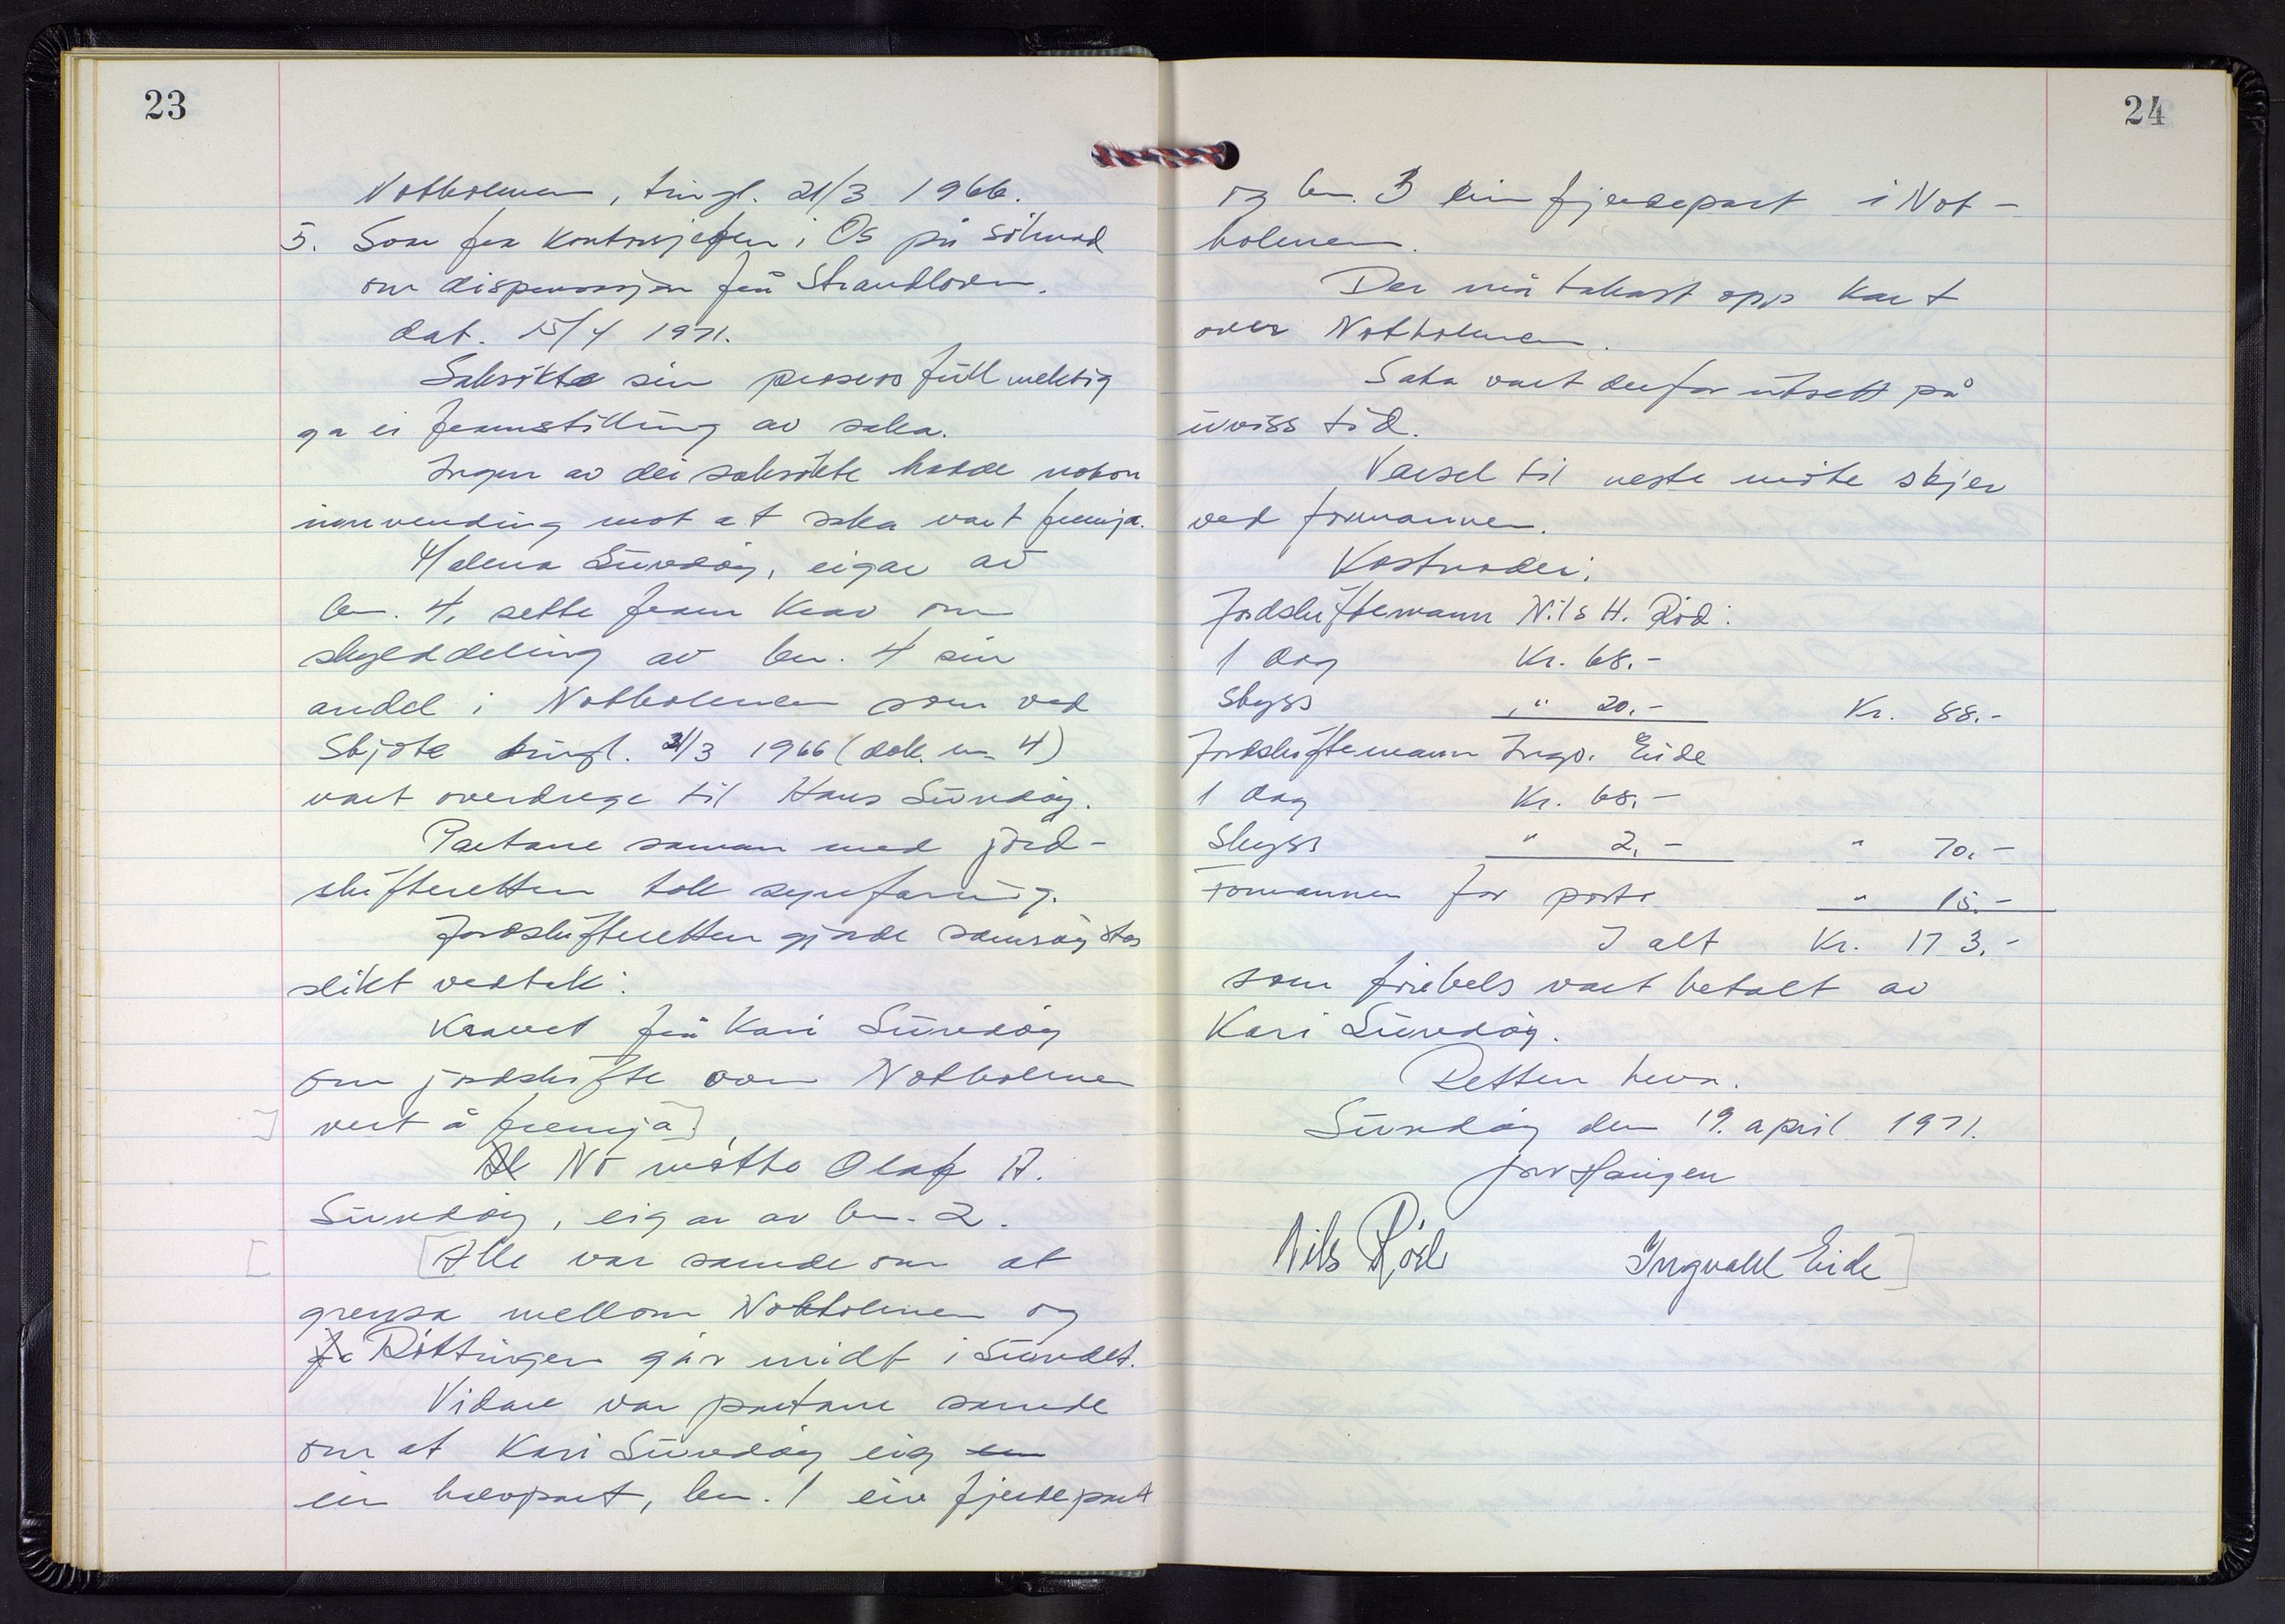 23
Notholmen, tingl. 21/3 1966.
5. Svar fra kontorsjefen i Os på söknad
om dispensasjon frå Strandloven.
dat. 15/4 1971.
Saksökte sin prosessfullmektig
ga ei framstilling av saka.
Ingen av dei saksökte hadde nokon
innvending mot at saka vart fremja.
Halena Sundöy, eigar av
bn. 4, sette fram krav om
skylddeling av bn. 4 sin
andel i Notholmen som ved
Skjöte tingl. 21/3 1966 (dok. nr. 4)
vart overdrege til Hans Sundöy.
Partane saman med jord-
skifteretten tok synfaring.
Jordskifteretten gjorde samröystes
slikt vedtak:
Kravet frå Kari Sundöy
om jordskifte over Notholmen
vert å fremja.
No mötte Olaf A.
Sundöy, eigar av bn. 2.
Alle var samde om at
grensa mellom Notholmen og
Röttingen går midt i Sundet.
Vidare var partane samde
om at Kari Sundöy eig
ein halvpart, bn. 1 ein fjerdepart
24
og bn. 3 ein fjerdepart i Not-
holmen.
Der må takast opp kart
over Notholmen.
Saka vart derfor utsett på
uviss tid.
Varsel til neste möte skjer
ved formannen.
Kostnader:
Jordskiftemann Nils H. Röd:
1 dag Kr. 68.-
Skyss " 20.- Kr. 88.-
Jordskiftemann Ingv. Eide
1 dag Kr. 68.-
Skyss " 2.- " 70.-
Formannen for porto " 15.-
I alt Kr. 173.-
som förebels vart betalt av
Kari Sundöy.
Retten heva.
Sundöy den 19. april 1971.
Haugen
Nils Röd Ingvald Eide